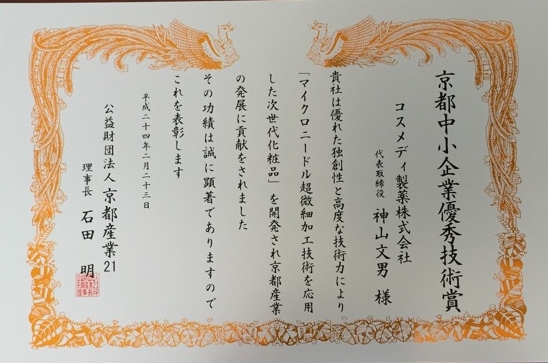 京都中小企業優秀技術賞
コスメディ製薬株式会社
代表取締役 神山文男 様
貴社は優れた独創性と高度な技術力により
「マイクロニードル超微細加工技術を応用
した次世代化粧品」を開発され京都産業
の発展に貢献をされました
その功績は誠に顕著でありますので
これを表彰します
平成二十四年二月二十三日
公益財団法人 京都産業21
理事長 石田 明